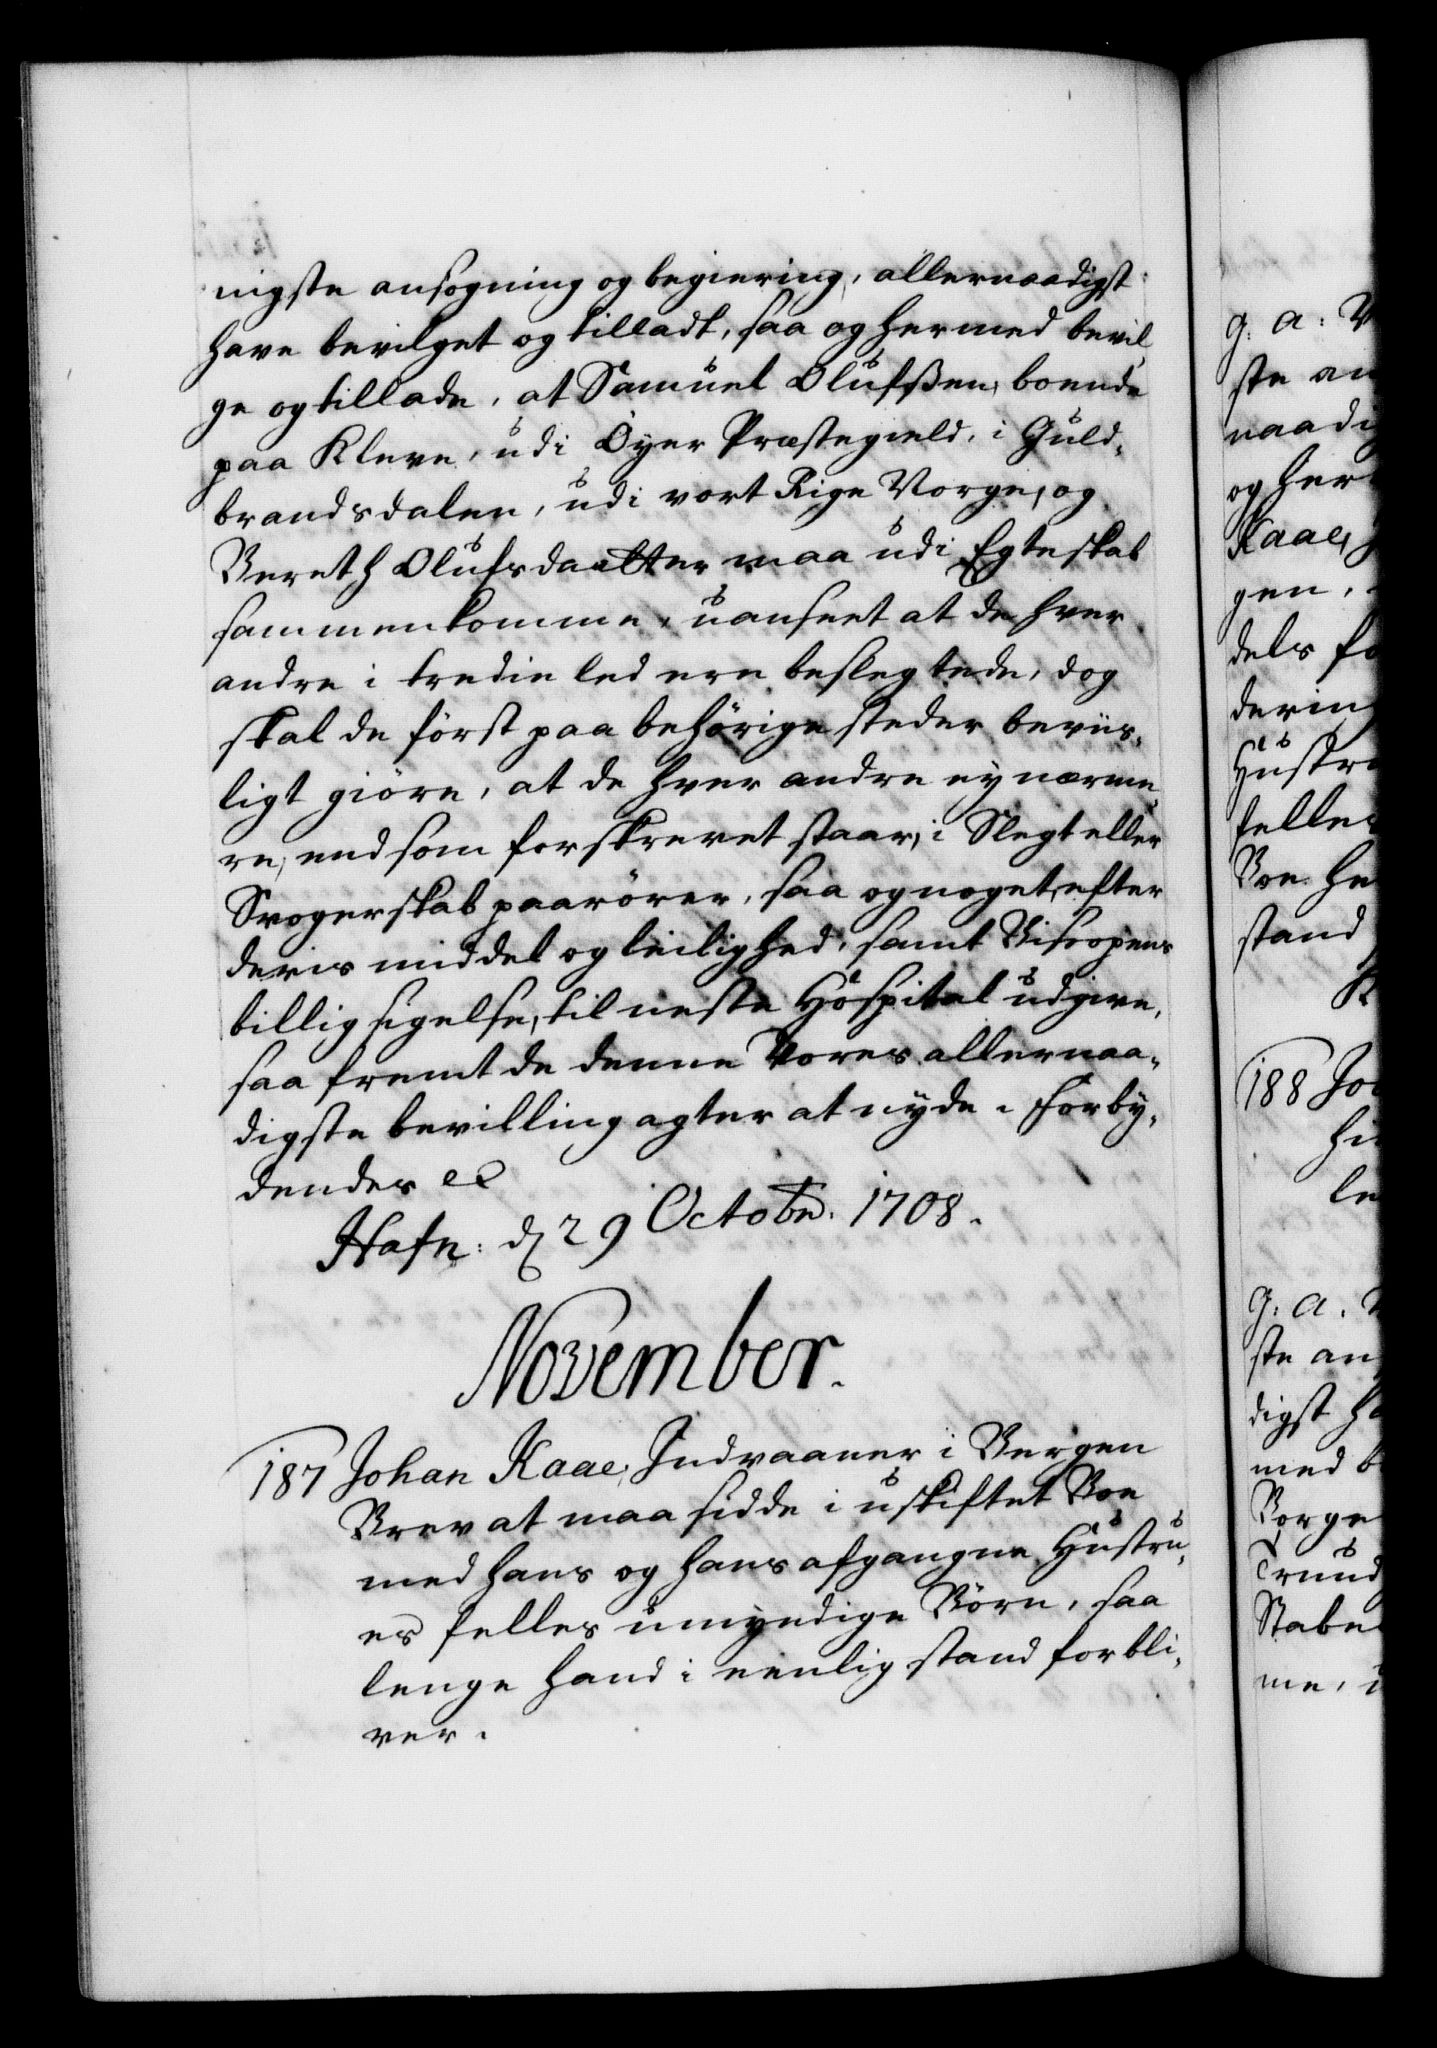 nigste ansøgning og begiering, allernaadigst
have bevilget og tilladt, saa og hermed bevil,
ge og tillade, at Samuel Olufsen, boende
paa Kleve, udi Öyer Præstegield, i Guld,
brandsdalen, udi vort Rige Norge, og
Bereth Olufsdaatter maa udi Egteskab
sammenkomme, uanseet at de hver
andre i tredie led ere beslegtede, dog
skal de först paa behörige steder beviis,
ligt giöre, at de hver andre ey nærme,
re, end som forskrevet staar, i Slegt eller
Svogerskab paarörer, saa og noget, efter
deris middel og leilighed, samt Biscopens
billig sigelse, til neste Hospital udgive,
saa fremt de denne Vores allernaa,
digste bevilling agter at nyde. Forby,
dendes ec
Hafn: d 29 Octobr. 1708.
November.
187 Johan Kaae, Indvaaner i Bergen
Brev at maa sidde i uskiftet Boe
med hans og hans afgangne Hustru,
es felles umyndige Börn, saa
lenge hand i eenlig stand forbli,
ver.
g. a: V
ste an
naadi
og her
Kaae,
gen,
dels fo
dering
Hustru
felles
Boe he
stand
K
188 Jo
hi
le
g: a. V
ste an
digst ha
med b
Borge
Trund
Stabe
me, u